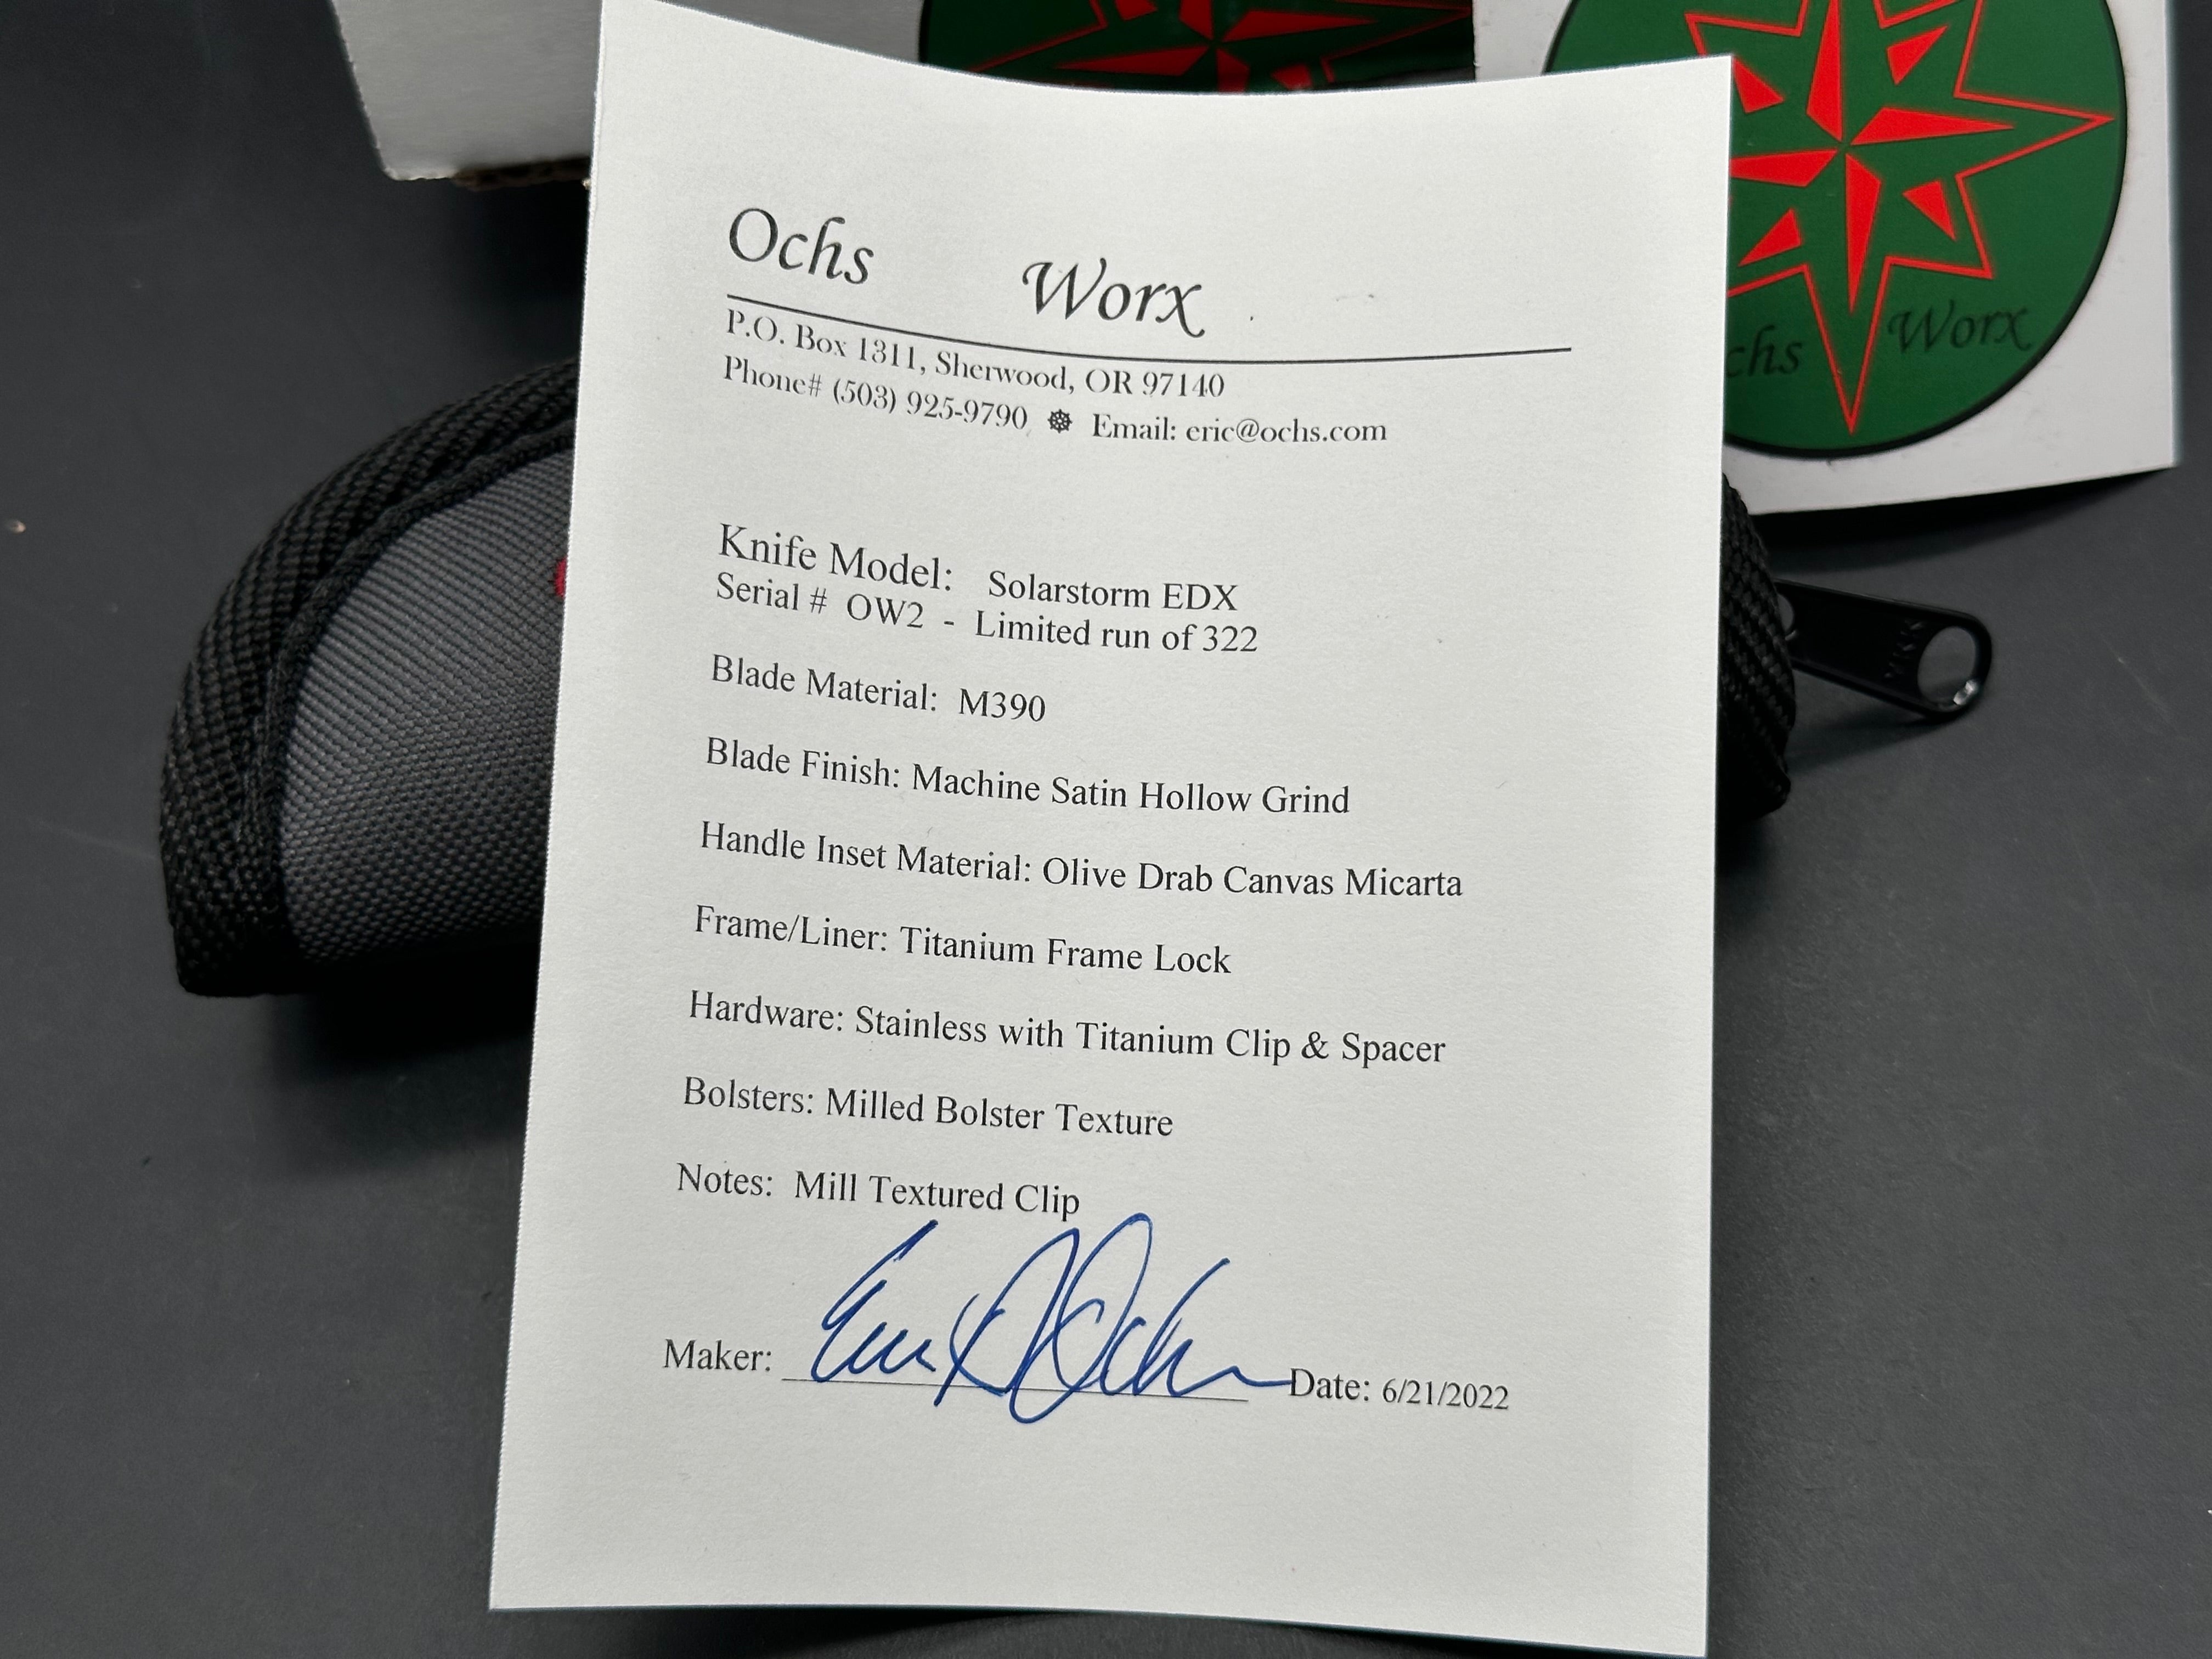 Ochs Worx
P.O. Box 1311, Sherwood, OR 97140
Phone# (503) 925-9790 ☸ Email: eric@ochs.com
Knife Model: Solarstorm EDX
Serial # OW2 - Limited run of 322
Blade Material: M390
Blade Finish: Machine Satin Hollow Grind
Handle Inset Material: Olive Drab Canvas Micarta
Frame/Liner: Titanium Frame Lock
Hardware: Stainless with Titanium Clip & Spacer
Bolsters: Milled Bolster Texture
Notes: Mill Textured Clip
Maker: Eric Ochs Date: 6/21/2022
chs Worx